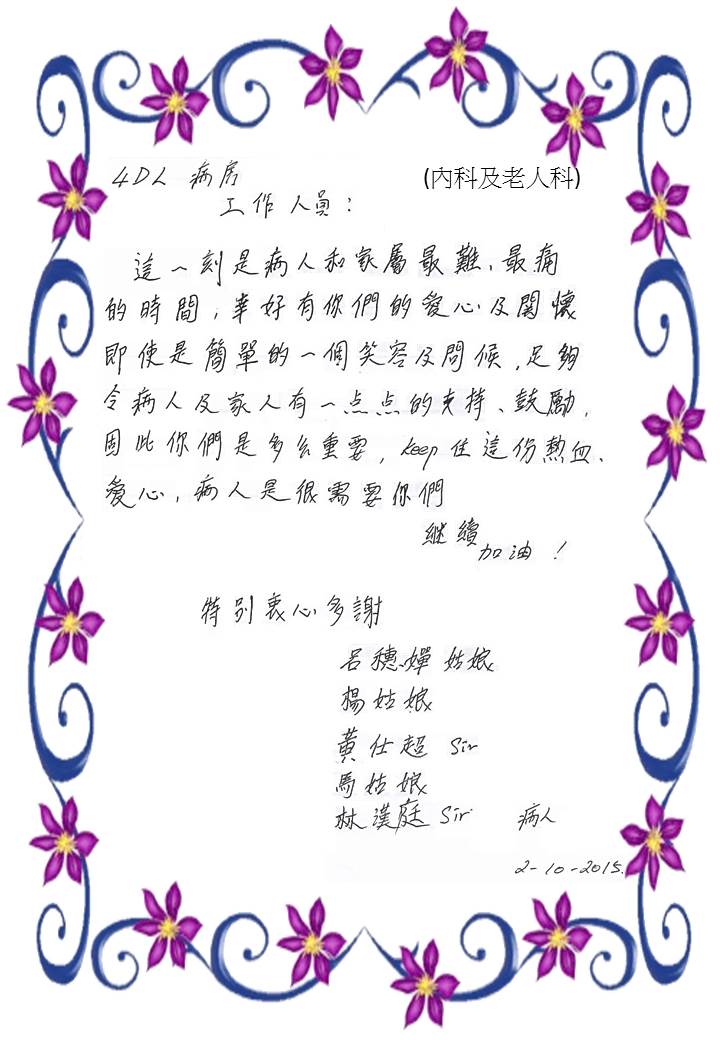 4DL 病房 (內科及老人科)
工作人員：
這一刻是病人和家屬最難、最痛
的時間，幸好有你們的愛心及関懷
即使是簡單的一個笑容及問候，足夠
令病人及家人有一点点的支持、鼓勵，
因此你們是多么重要，keep 住這份熱血、
愛心，病人是很需要你們
継續
加油！
特別衷心多謝
呂穗嬋姑娘
楊姑娘
黃仕超 Sir
馬姑娘
林漢庭 Sir 病人
2-10-2015.